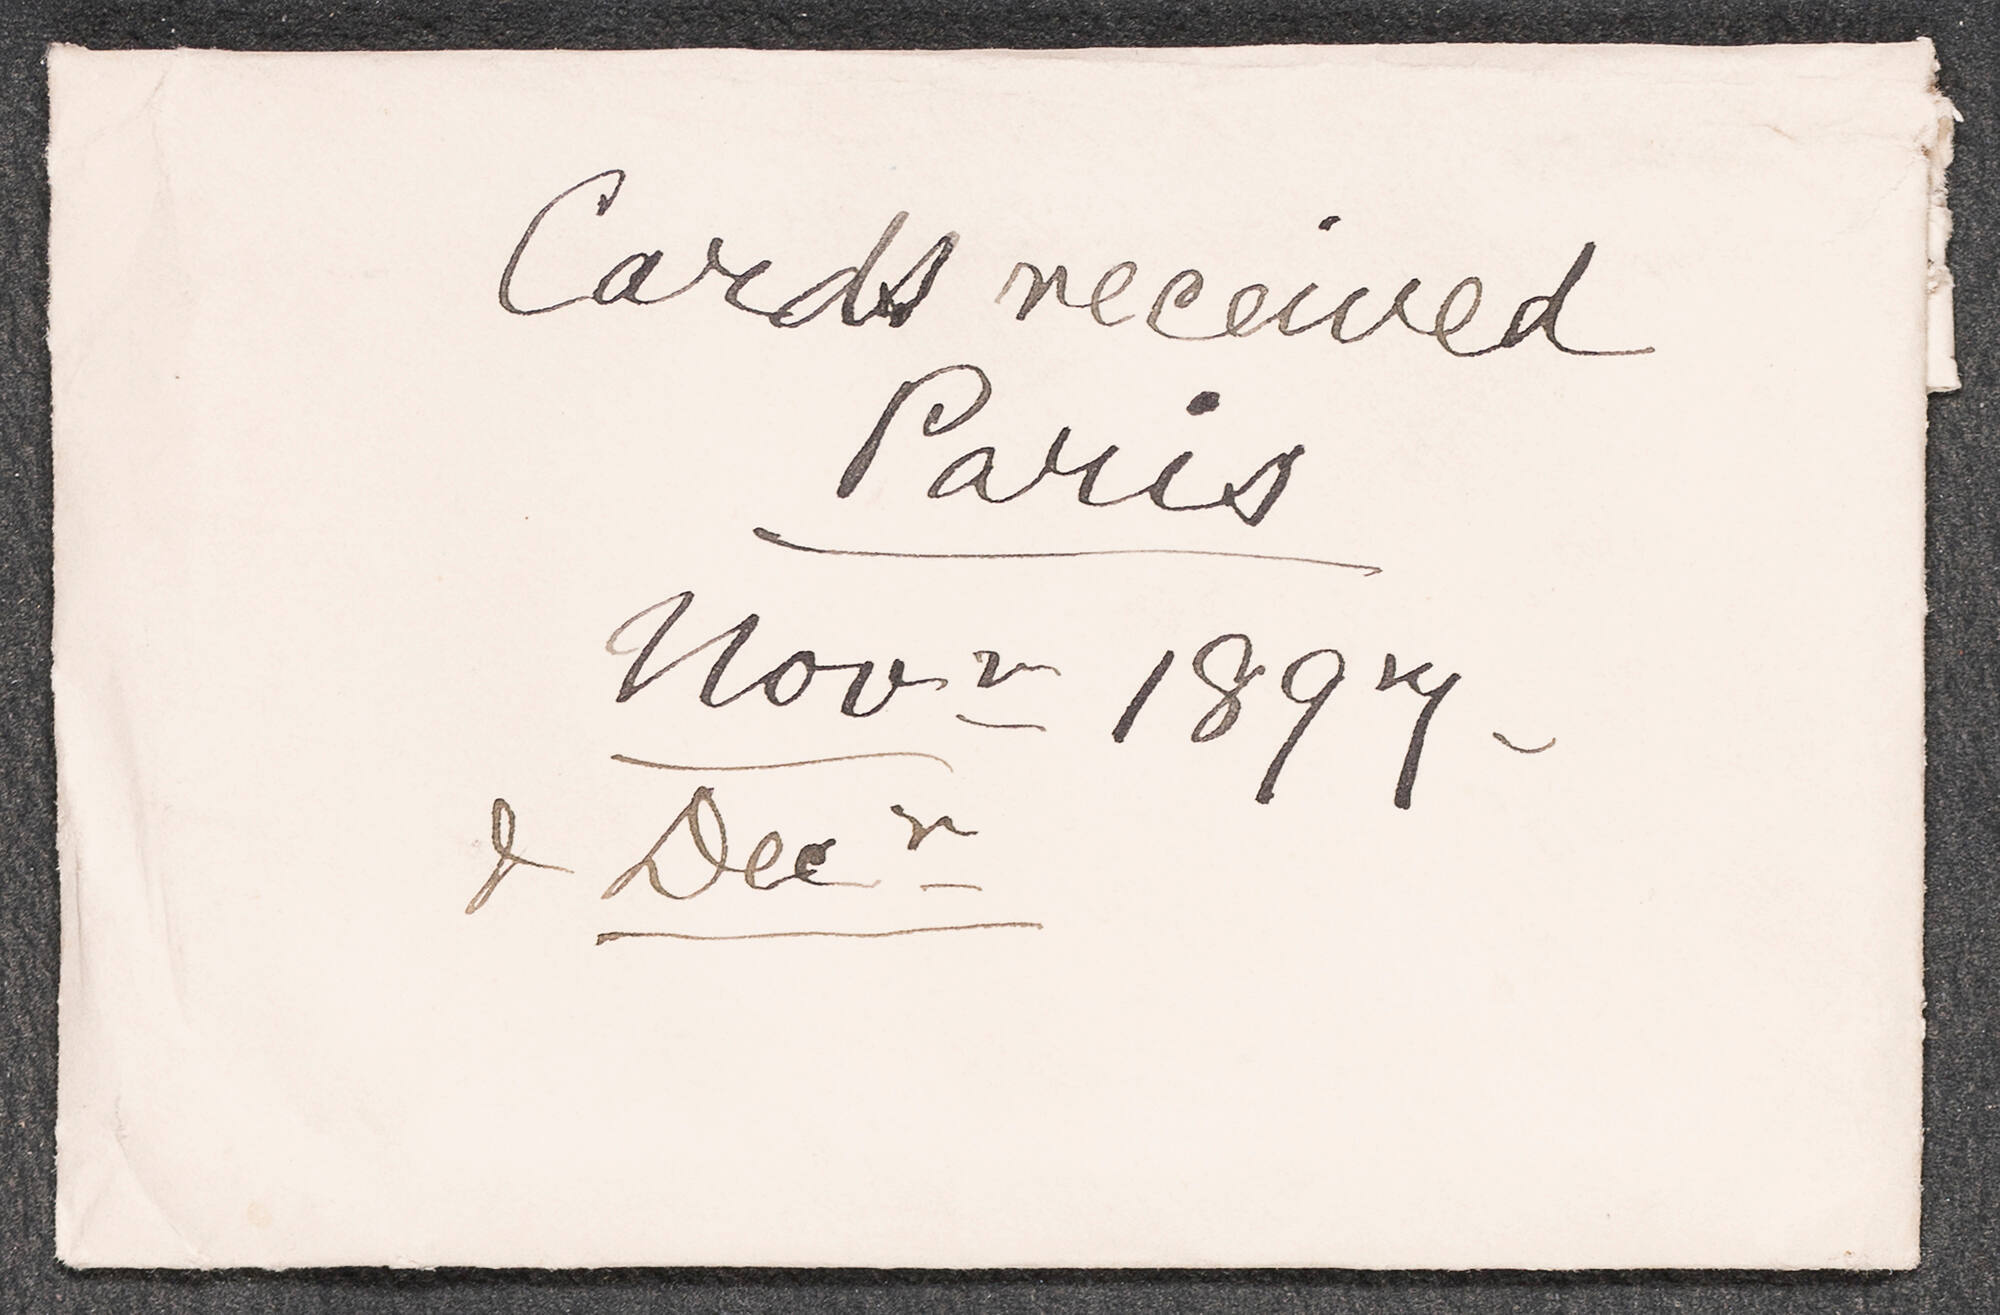 Cards received
Paris
Novr 1897
& Decr